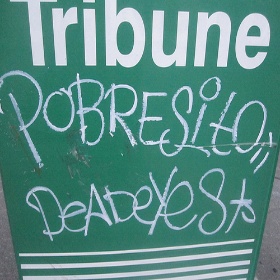 Tribune
PoBRESito,,
DeADeyeSto